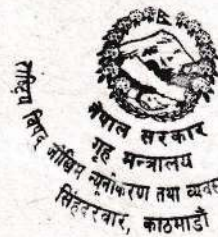 नेपाल सरकार
गृह मन्त्रालय
राष्ट्रिय विपद् जोखिम न्यूनीकरण तथा
सिंहदरबार, काठमाडौं